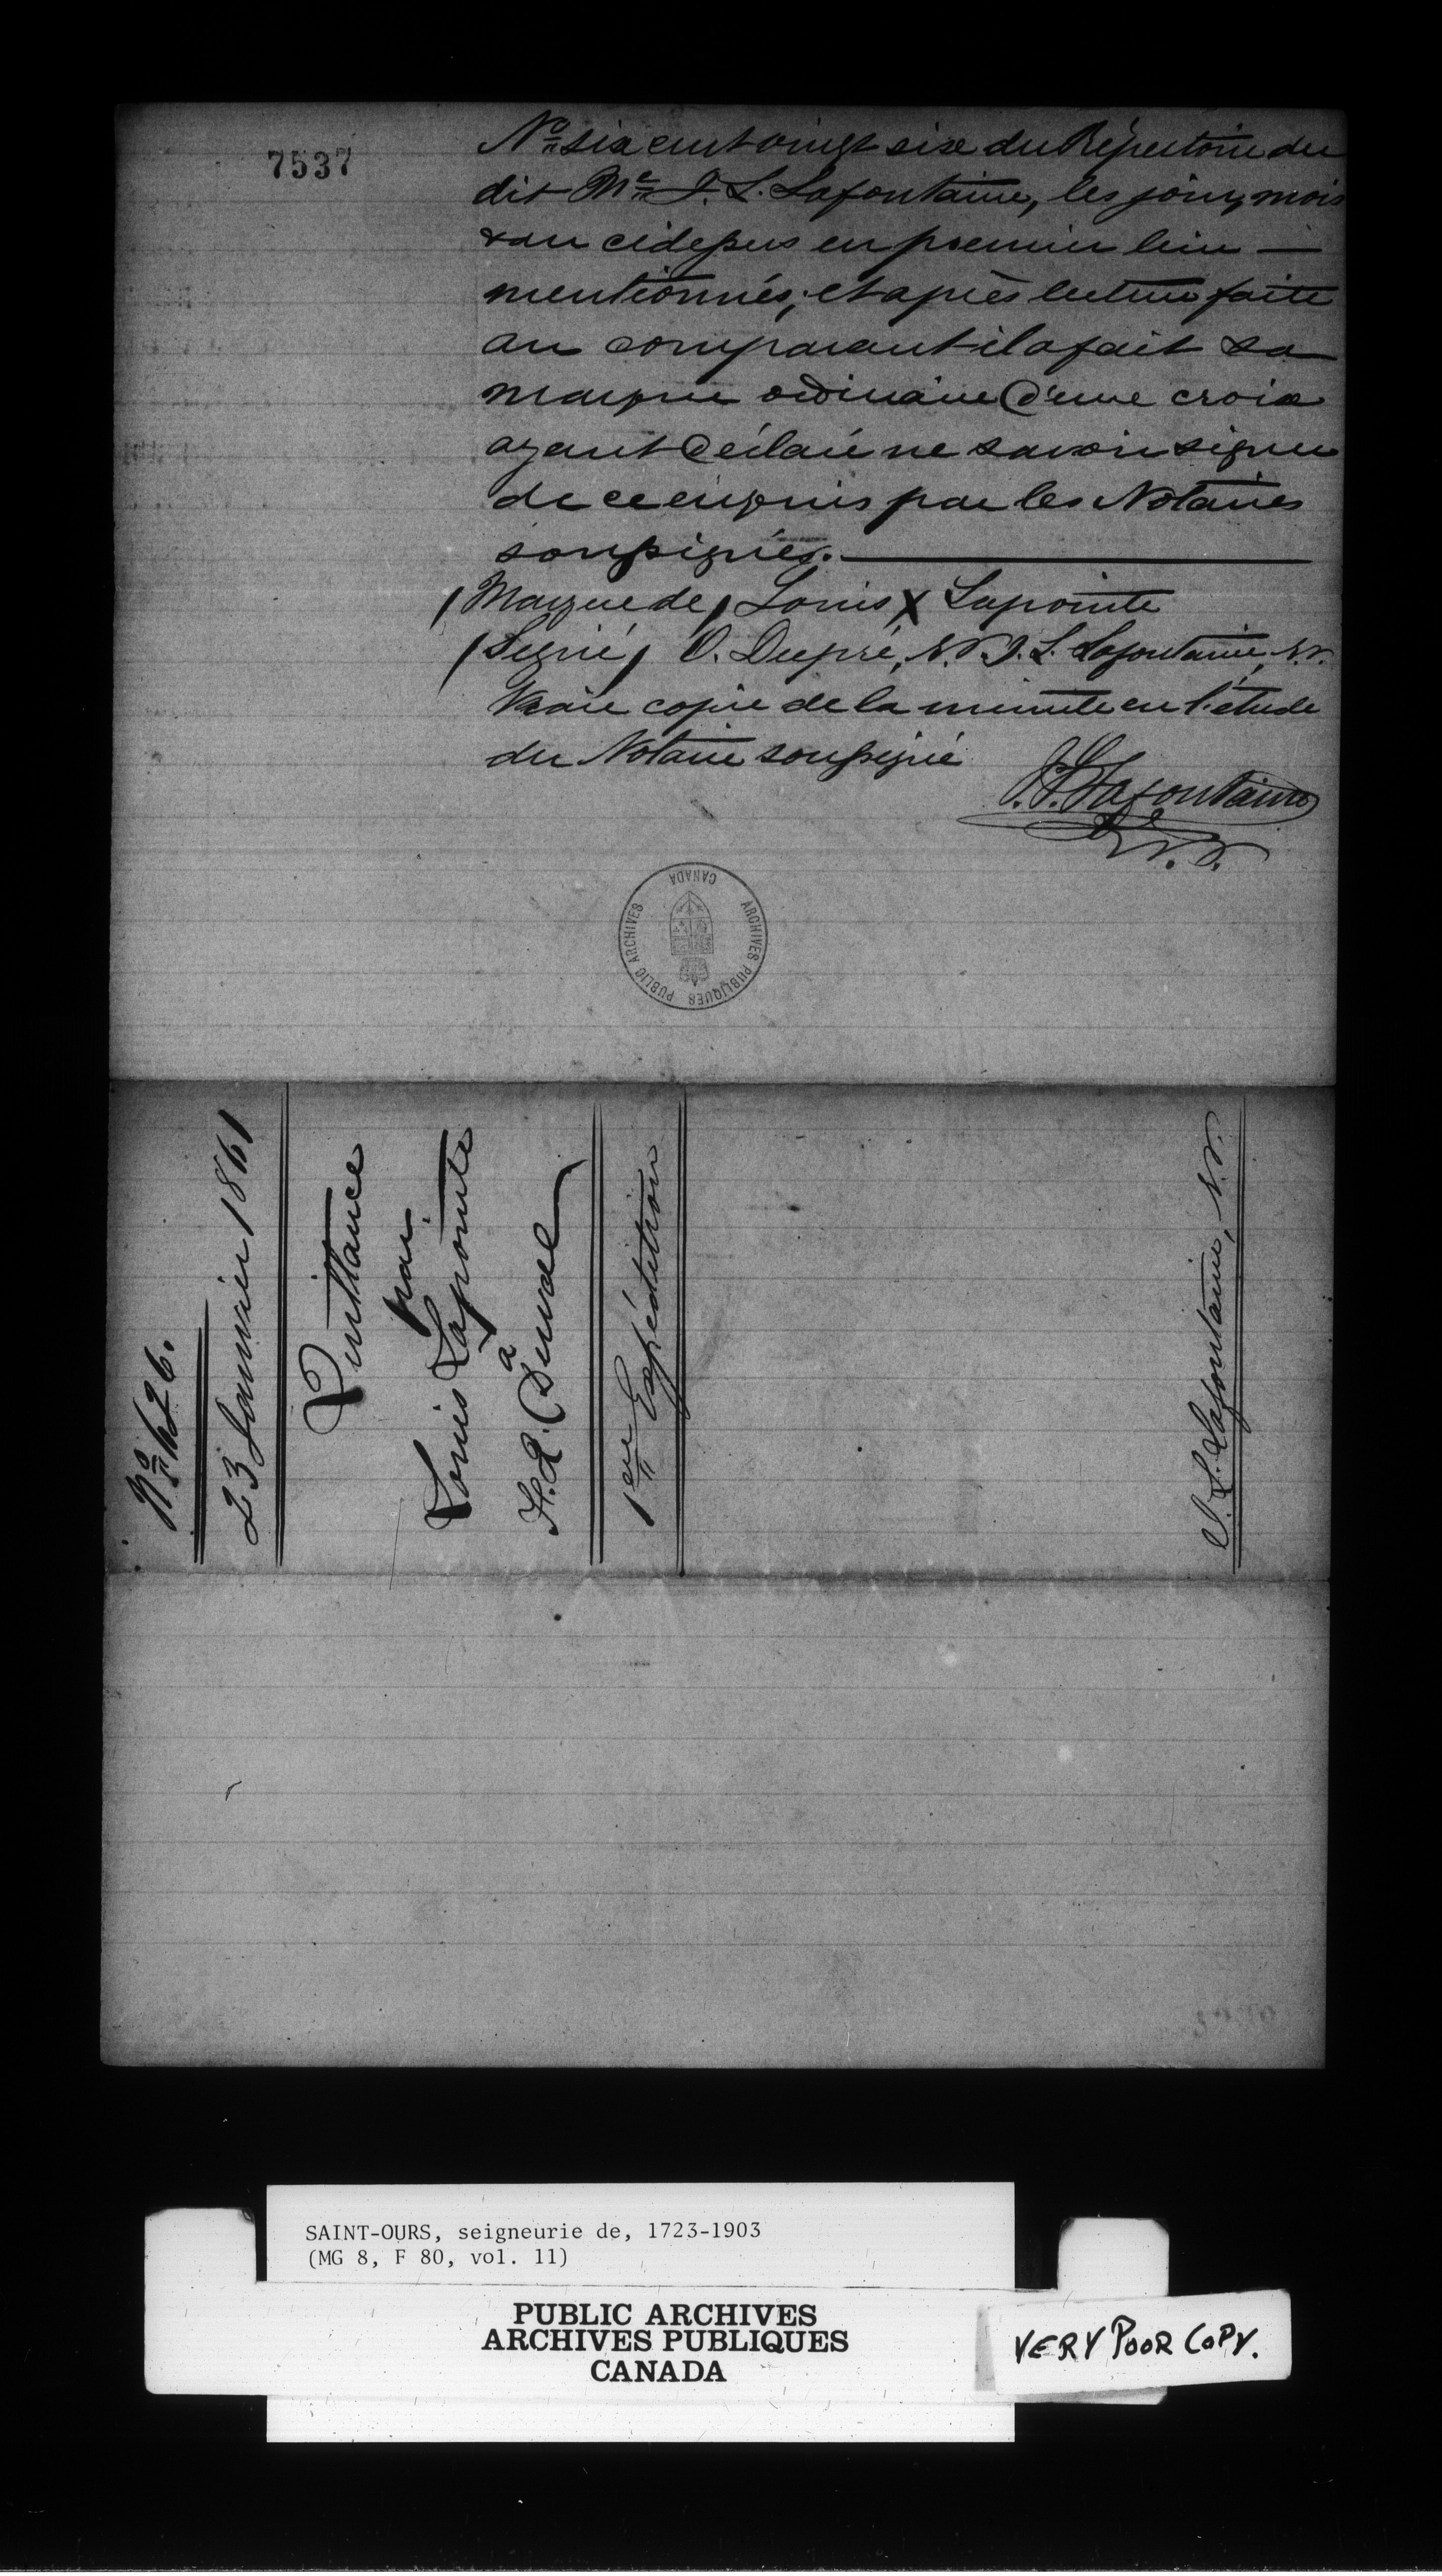 7537
No six cent vingt six du Répertoire du
dit Me J. L. Lafontaine, les jour, mois
& an cidessus en premier lieu —
mentionnés; et après lecture faite
au comparant il a fait sa
marque ordinaire d'une croix
ayant déclaré ne savoir signer
de ce enquis par les Notaires
soussignés.
(Marque de) Louis X Lapointe
(Signé) O. Dupré, N.P. J. L. Lafontaine, N.P.
Vraie copie de la minute en l'étude
du Notaire soussigné
J. L. Lafontaine
N.P.
PUBLIC ARCHIVES
ARCHIVES PUBLIQUES
CANADA
No 626.
23 Janvier 1861
Quittance
par
Louis Lapointe
à
H. L. Duval
1ère Expédition
J. L. Lafontaine, N.P.
SAINT-OURS, seigneurie de, 1723-1903
(MG 8, F 80, vol. 11)
PUBLIC ARCHIVES
ARCHIVES PUBLIQUES
CANADA
VERY POOR COPY.